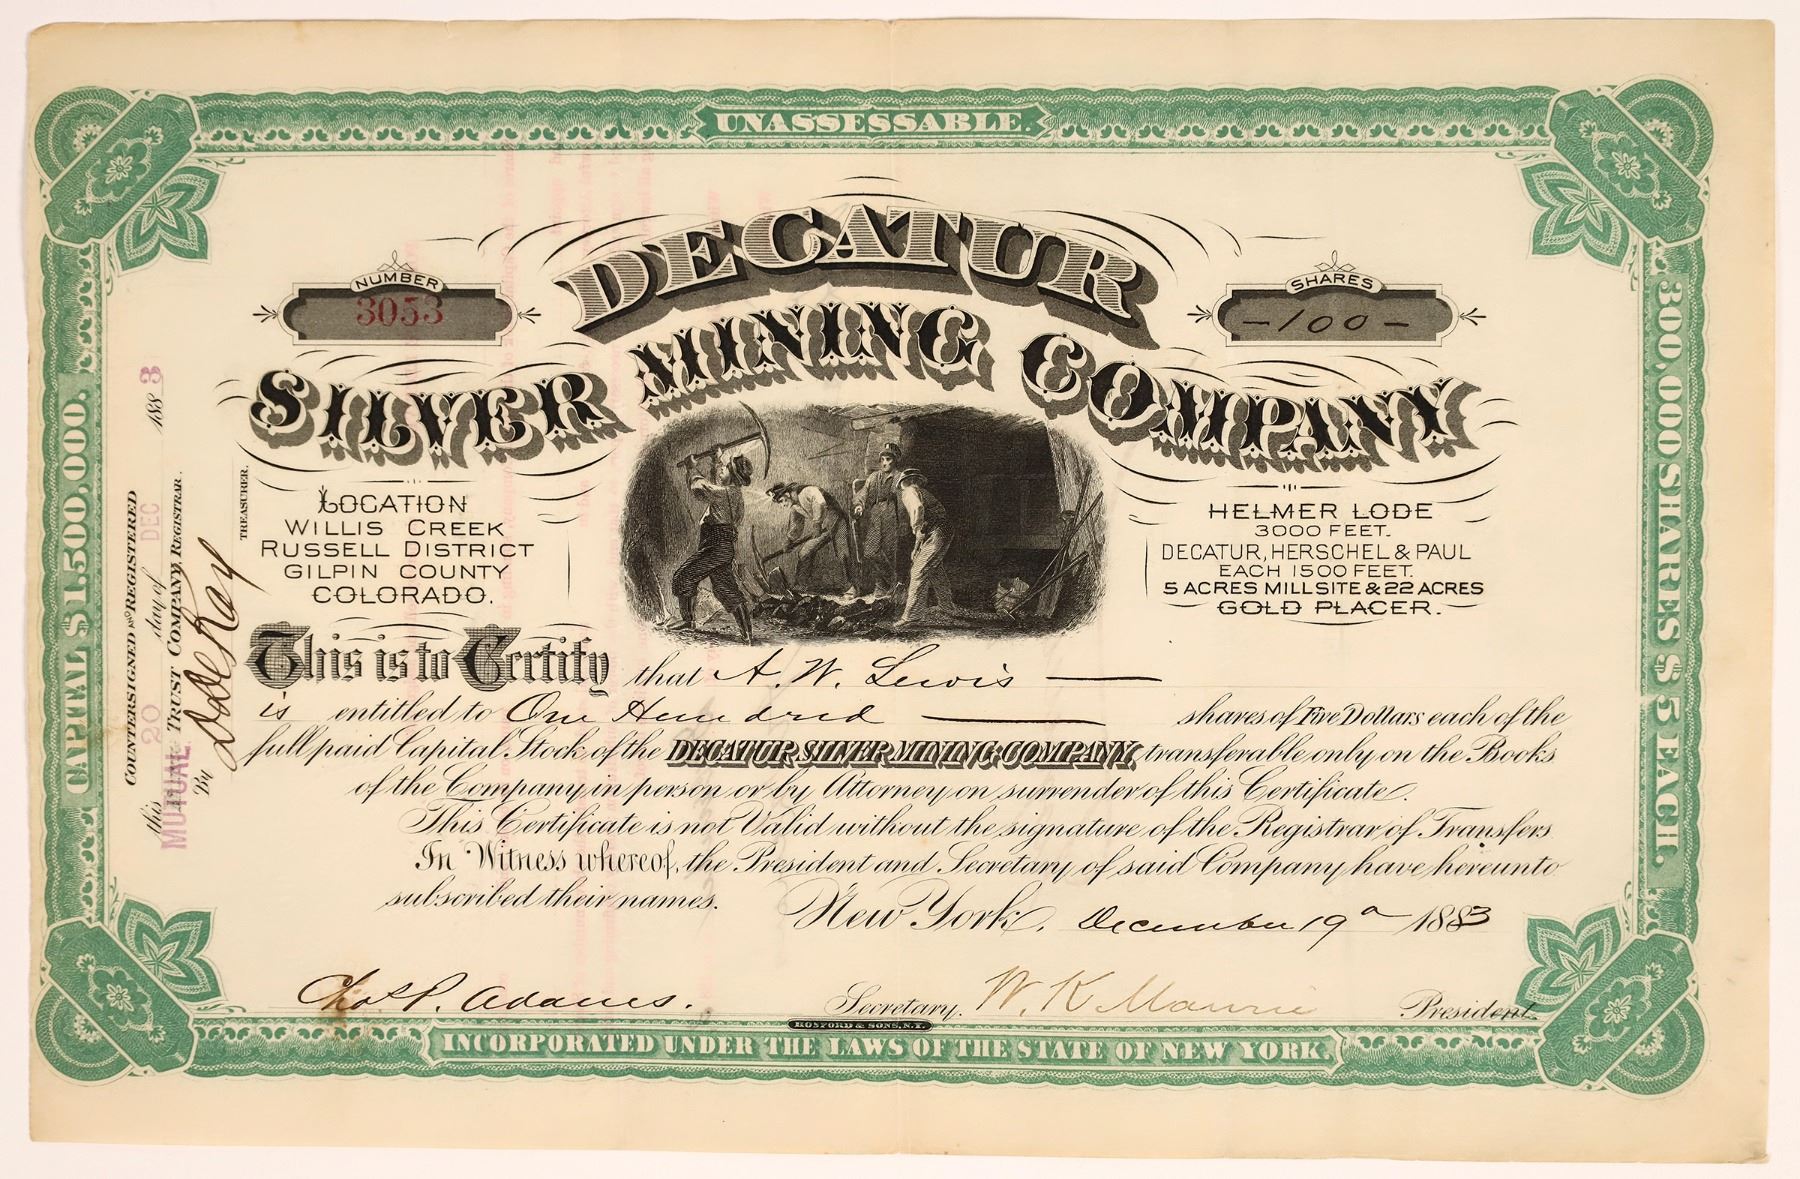 UNASSESSABLE.
NUMBER
3053
SHARES
-100-
DECATUR
SILVER MINING COMPANY
LOCATION
WILLIS CREEK
RUSSELL DISTRICT
GILPIN COUNTY
COLORADO.
HELMER LODE
3000 FEET.
DECATUR, HERSCHEL & PAUL
EACH 1500 FEET.
5 ACRES MILLSITE & 22 ACRES
GOLD PLACER.
This is to Certify that A. W. Lewis
is entitled to One Hundred shares of Five Dollars each of the
full paid Capital Stock of the DECATUR SILVER MINING COMPANY, transferable only on the Books
of the Company in person or by Attorney on surrender of this Certificate.
This Certificate is not Valid without the signature of the Registrar of Transfers
In Witness whereof, the President and Secretary of said Company have hereunto
subscribed their names.
New York, December 19 1883
Chas P. Adams. Secretary. W. K. President.
ROSFORD & SONS, N.Y.
INCORPORATED UNDER THE LAWS OF THE STATE OF NEW YORK.
CAPITAL $1,500,000.
300,000 SHARES $5 EACH.
COUNTERSIGNED AND REGISTERED
this 20 day of DEC 1883
MUTUAL TRUST COMPANY, REGISTRAR.
By
TREASURER.